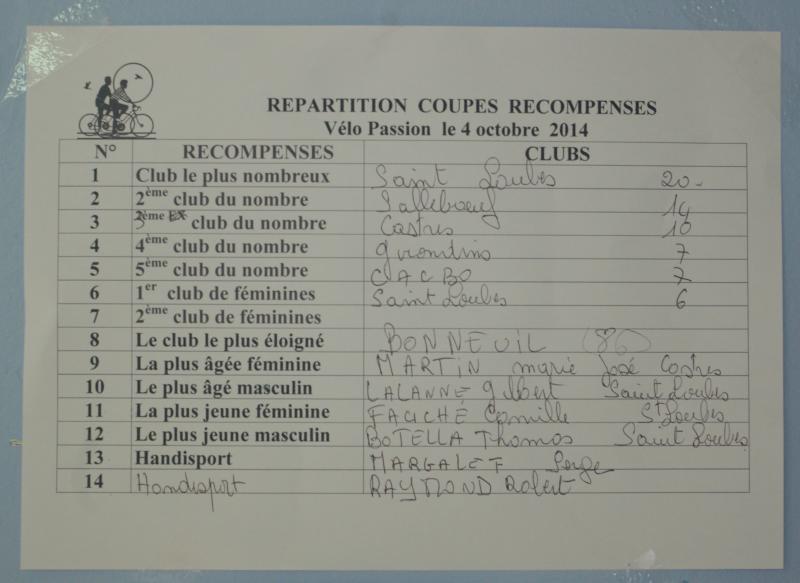 REPARTITION COUPES RECOMPENSES
Vélo Passion le 4 octobre 2014
N° RECOMPENSES CLUBS
1 Club le plus nombreux Saint Loubes 20
2 2ème club du nombre Salleboeuf 14
3 3ème club du nombre Castres 10
4 4ème club du nombre girondins 7
5 5ème club du nombre CACBO 7
6 1er club de féminines Saint Loubes 6
7 2ème club de féminines
8 Le club le plus éloigné BONNEUIL (86)
9 La plus âgée féminine MARTIN marie José Castres
10 Le plus âgé masculin LALANNE Gilbert Saint Loubes
11 La plus jeune féminine FAUCHÉ Camille St Loubes
12 Le plus jeune masculin BOTELLA Thomas Saint Loubes
13 Handisport MARGALEF Serge
14 Handisport RAYMOND Robert